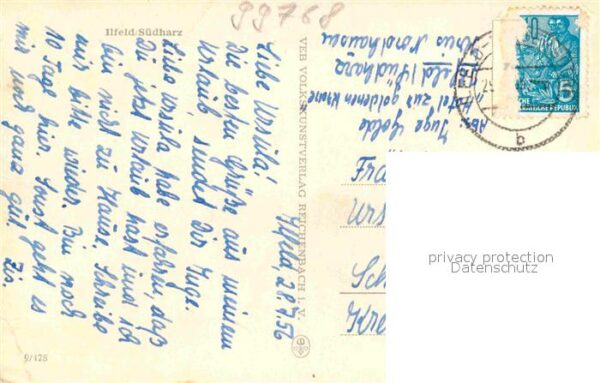 99768
Ilfeld/Südharz
Ilfeld, 2.8.7.56
Liebe Ursula!
Die besten Grüße aus meinem
Urlaub sendet Dir Inge.
Liebe Ursula habe erfahren, daß
Du jetzt Urlaub hast und ich
bin nicht zu Hause. Schreibe
mir bitte wieder. Bin noch
10 Tage hier. Sonst geht es
mir ganz gut.
VEB VOLKSKUNSTVERLAG REICHENBACH i. V.
9/128
Abs.: Inge
Hotel zur goldenen Krone
Ilfeld / Südharz
Kreis Nordhausen
Fra
Urs
Sch
Kre
5
b
privacy protection
Datenschutz